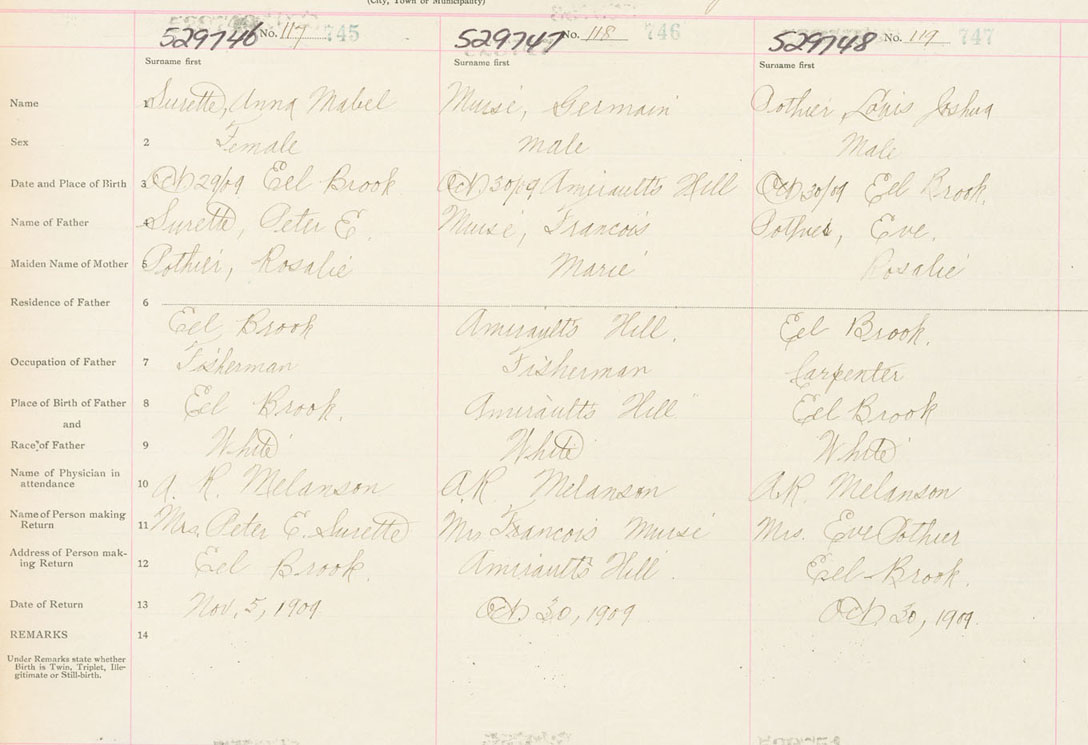 (City, Town or Municipality)
529746 No. 117 745 529747 No. 118 746 529748 No. 119 747
Surname first Surname first Surname first
Name 1 Surette, Anna Mabel Muise, Germain Pothier, Louis Joshua
Sex 2 Female Male Male
Date and Place of Birth 3 Oct 29/09 Eel Brook Oct 30/09 Amiraults Hill Oct 30/09 Eel Brook.
Name of Father 4 Surette, Peter E. Muise, Francois Pothier, Eve.
Maiden Name of Mother 5 Pothier, Rosalie Marie Rosalie
Residence of Father 6
Eel Brook Amiraults Hill. Eel Brook.
Occupation of Father 7 Fisherman Fisherman Carpenter
Place of Birth of Father 8 Eel Brook. Amiraults Hill Eel Brook
and
Race of Father 9 White White White
Name of Physician in
attendance 10 A. R. Melanson AR Melanson AR. Melanson
Name of Person making
Return 11 Mrs. Peter E. Surette Mrs Francois Muise Mrs. Eve Pothier
Address of Person mak-
ing Return 12 Eel Brook. Amiraults Hill. Eel Brook.
Date of Return 13 Nov. 5, 1909 Oct 30, 1909 Oct 30, 1909.
REMARKS 14
Under Remarks state whether
Birth is Twin, Triplet, Ille-
gitimate or Still-birth.